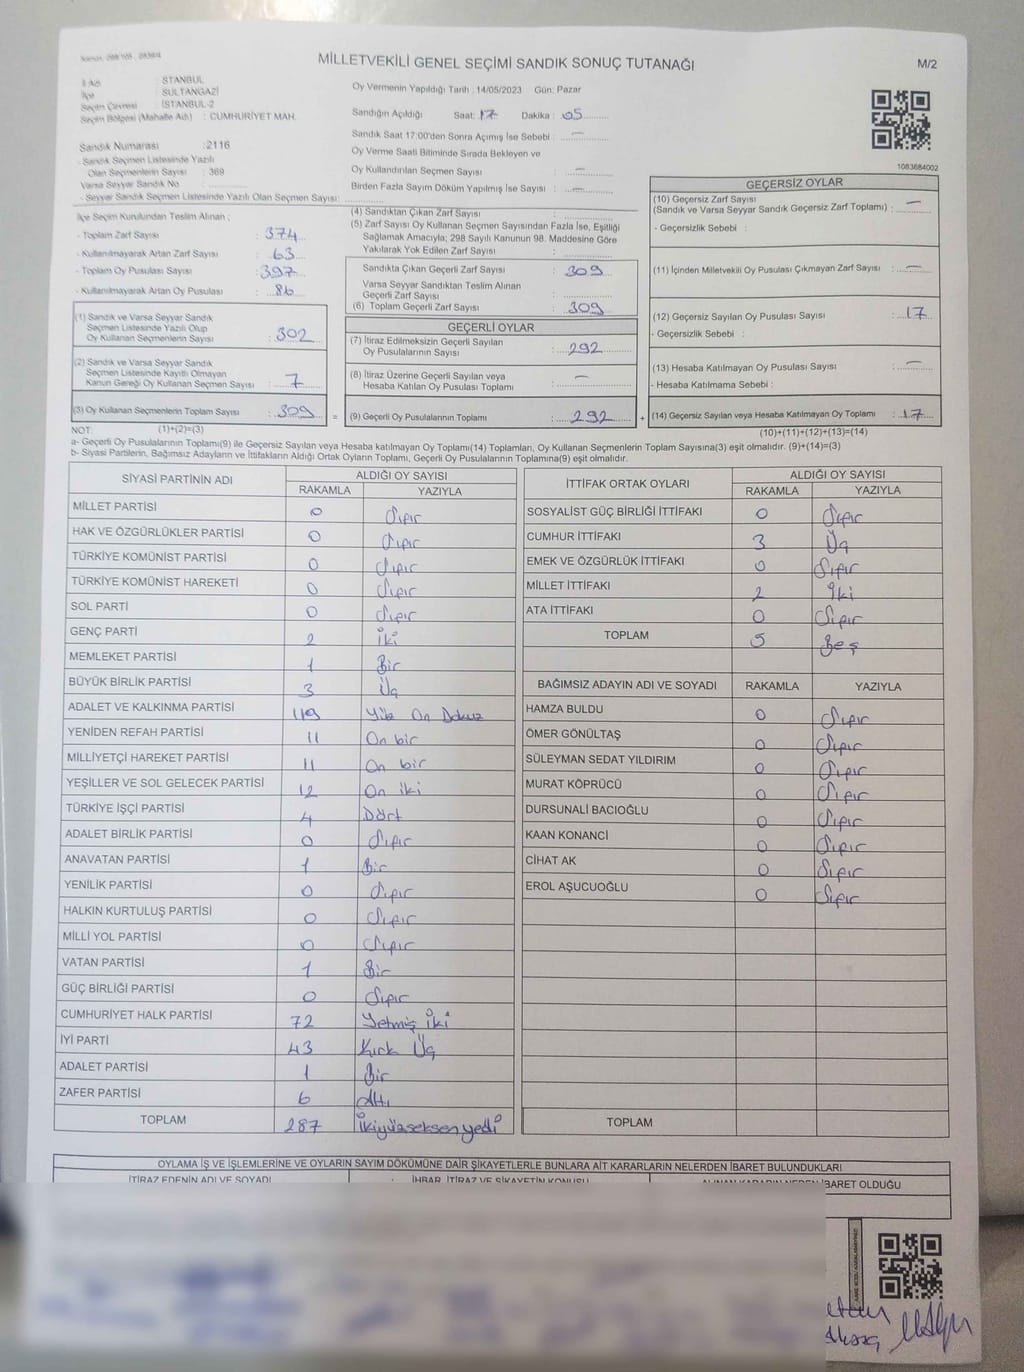 MİLLETVEKİLİ GENEL SEÇİMİ SANDIK SONUÇ TUTANAĞI
M/2
İlçe : SULTANGAZİ
Seçim Çevresi : İSTANBUL-2
Seçim Bölgesi (Mahalle Adı) : CUMHURİYET MAH.
Sandık Numarası : 2116
- Sandık Seçmen Listesinde Yazılı
Olan Seçmenlerin Sayısı : 369
Varsa Seyyar Sandık No :
- Seyyar Sandık Seçmen Listesinde Yazılı Olan Seçmen Sayısı:
Oy Vermenin Yapıldığı Tarih : 14/05/2023 Gün: Pazar
Sandığın Açıldığı Saat: 17 Dakika : 05
Sandık Saat 17:00'den Sonra Açımış İse Sebebi : —
Oy Verme Saati Bitiminde Sırada Bekleyen ve
Oy Kullandırılan Seçmen Sayısı : —
Birden Fazla Sayım Döküm Yapılmış İse Sayısı : —
1083684002
İlçe Seçim Kurulundan Teslim Alınan ;
- Toplam Zarf Sayısı : 374
- Kullanılmayarak Artan Zarf Sayısı : 63
- Toplam Oy Pusulası Sayısı : 397
- Kullanılmayarak Artan Oy Pusulası : 86
(1) Sandık ve Varsa Seyyar Sandık
Seçmen Listesinde Yazılı Olup
Oy Kullanan Seçmenlerin Sayısı : 302
(2) Sandık ve Varsa Seyyar Sandık
Seçmen Listesinde Kayıtlı Olmayan
Kanun Gereği Oy Kullanan Seçmen Sayısı : 7
(3) Oy Kullanan Seçmenlerin Toplam Sayısı : 309 =
(4) Sandıktan Çıkan Zarf Sayısı :
(5) Zarf Sayısı Oy Kullanan Seçmen Sayısından Fazla İse, Eşitliği
Sağlamak Amacıyla; 298 Sayılı Kanunun 98. Maddesine Göre
Yakılarak Yok Edilen Zarf Sayısı :
Sandıkta Çıkan Geçerli Zarf Sayısı : 309
Varsa Seyyar Sandıktan Teslim Alınan
Geçerli Zarf Sayısı :
(6) Toplam Geçerli Zarf Sayısı : 309
GEÇERLİ OYLAR
(7) İtiraz Edilmeksizin Geçerli Sayılan
Oy Pusulalarının Sayısı : 292
(8) İtiraz Üzerine Geçerli Sayılan veya
Hesaba Katılan Oy Pusulası Toplamı : —
(9) Geçerli Oy Pusulalarının Toplamı : 292 +
GEÇERSİZ OYLAR
(10) Geçersiz Zarf Sayısı
(Sandık ve Varsa Seyyar Sandık Geçersiz Zarf Toplamı) : —
- Geçersizlik Sebebi :
(11) İçinden Milletvekili Oy Pusulası Çıkmayan Zarf Sayısı : —
(12) Geçersiz Sayılan Oy Pusulası Sayısı : 17
- Geçersizlik Sebebi :
(13) Hesaba Katılmayan Oy Pusulası Sayısı : —
- Hesaba Katılmama Sebebi :
(14) Geçersiz Sayılan veya Hesaba Katılmayan Oy Toplamı : 17
NOT: (1)+(2)=(3)
(10)+(11)+(12)+(13)=(14)
a- Geçerli Oy Pusulalarının Toplamı(9) ile Geçersiz Sayılan veya Hesaba katılmayan Oy Toplamı(14) Toplamları, Oy Kullanan Seçmenlerin Toplam Sayısına(3) eşit olmalıdır. (9)+(14)=(3)
b- Siyasi Partilerin, Bağımsız Adayların ve İttifakların Aldığı Ortak Oyların Toplamı, Geçerli Oy Pusulalarının Toplamına(9) eşit olmalıdır.
SİYASİ PARTİNİN ADI
ALDIĞI OY SAYISI
RAKAMLA YAZIYLA
MİLLET PARTİSİ 0 Sıfır
HAK VE ÖZGÜRLÜKLER PARTİSİ 0 Sıfır
TÜRKİYE KOMÜNİST PARTİSİ 0 Sıfır
TÜRKİYE KOMÜNİST HAREKETİ 0 Sıfır
SOL PARTİ 0 Sıfır
GENÇ PARTİ 2 İki
MEMLEKET PARTİSİ 1 Bir
BÜYÜK BİRLİK PARTİSİ 3 Üç
ADALET VE KALKINMA PARTİSİ 119 Yüz On Dokuz
YENİDEN REFAH PARTİSİ 11 On bir
MİLLİYETÇİ HAREKET PARTİSİ 11 On bir
YEŞİLLER VE SOL GELECEK PARTİSİ 12 On iki
TÜRKİYE İŞÇİ PARTİSİ 4 Dört
ADALET BİRLİK PARTİSİ 0 Sıfır
ANAVATAN PARTİSİ 1 Bir
YENİLİK PARTİSİ 0 Sıfır
HALKIN KURTULUŞ PARTİSİ 0 Sıfır
MİLLİ YOL PARTİSİ 0 Sıfır
VATAN PARTİSİ 1 Bir
GÜÇ BİRLİĞİ PARTİSİ 0 Sıfır
CUMHURİYET HALK PARTİSİ 72 Yetmiş iki
İYİ PARTİ 43 Kırk Üç
ADALET PARTİSİ 1 Bir
ZAFER PARTİSİ 6 Altı
TOPLAM 287 İkiyüzseksenyedi
İTTİFAK ORTAK OYLARI
ALDIĞI OY SAYISI
RAKAMLA YAZIYLA
SOSYALİST GÜÇ BİRLİĞİ İTTİFAKI 0 Sıfır
CUMHUR İTTİFAKI 3 Üç
EMEK VE ÖZGÜRLÜK İTTİFAKI 0 Sıfır
MİLLET İTTİFAKI 2 İki
ATA İTTİFAKI 0 Sıfır
TOPLAM 5 Beş
BAĞIMSIZ ADAYIN ADI VE SOYADI RAKAMLA YAZIYLA
HAMZA BULDU 0 Sıfır
ÖMER GÖNÜLTAŞ 0 Sıfır
SÜLEYMAN SEDAT YILDIRIM 0 Sıfır
MURAT KÖPRÜCÜ 0 Sıfır
DURSUNALİ BACIOĞLU 0 Sıfır
KAAN KONANCİ 0 Sıfır
CİHAT AK 0 Sıfır
EROL AŞUCUOĞLU 0 Sıfır
TOPLAM
OYLAMA İŞ VE İŞLEMLERİNE VE OYLARIN SAYIM DÖKÜMÜNE DAİR ŞİKAYETLERLE BUNLARA AİT KARARLARIN NELERDEN İBARET BULUNDUKLARI
İTİRAZ EDENİN ADI VE SOYADI İHBAR, İTİRAZ VE ŞİKAYETİN KONUSU ALINAN KARARIN NEDEN İBARET OLDUĞU